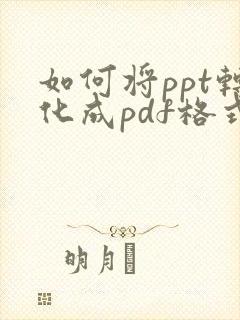 如何将ppt转
化成pdf格式
明月